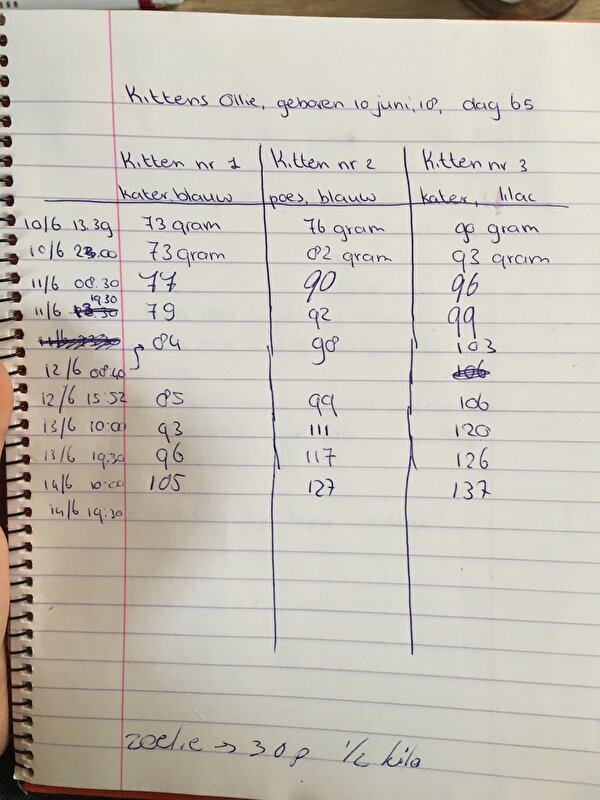 Kittens Ollie, geboren 10 juni, 18, dag 65
Kitten nr 1 Kitten nr 2 Kitten nr 3
kater, blauw poes, blauw kater, lilac
10/6 13.39 73 gram 76 gram 90 gram
10/6 23.00 73 gram 82 gram 93 gram
11/6 08.30 77 90 96
19.30
11/6 79 92 99
84 98 103
12/6 08.40 106
12/6 15:52 85 99 106
13/6 10:00 93 111 120
13/6 19:30 96 117 126
14/6 10:00 105 127 137
14/6 19:30
zoelie → 30p 1/2 kilo